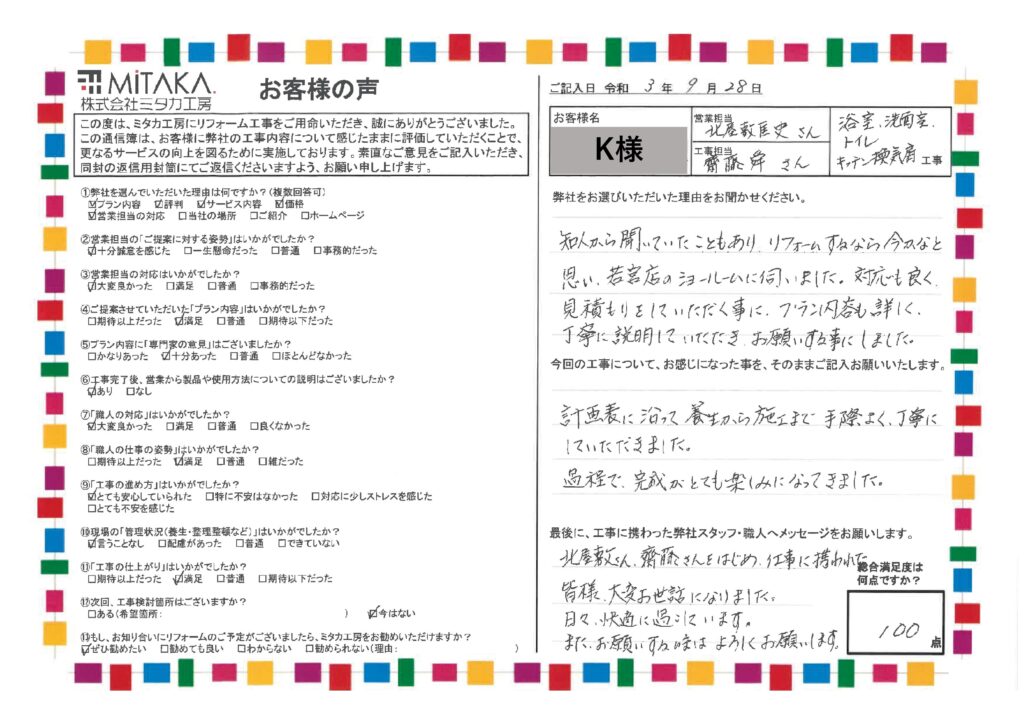 MiTAKA
株式会社ミタカ工房
お客様の声
この度は、ミタカ工房にリフォーム工事をご用命いただき、誠にありがとうございました。
この通信簿は、お客様に弊社の工事内容について感じたままに評価していただくことで、
更なるサービスの向上を図るために実施しております。素直なご意見をご記入いただき、
同封の返信用封筒にてご返信くださいますよう、お願い申し上げます。
①弊社を選んでいただいた理由は何ですか?(複数回答可)
☑プラン内容 ☑評判 ☑サービス内容 ☑価格
☑営業担当の対応 □当社の場所 □ご紹介 □ホームページ
②営業担当の「ご提案に対する姿勢」はいかがでしたか?
☑十分誠意を感じた □一生懸命だった □普通 □事務的だった
③営業担当の対応はいかがでしたか?
☑大変良かった □満足 □普通 □事務的だった
④ご提案させていただいた「プラン内容」はいかがでしたか?
□期待以上だった ☑満足 □普通 □期待以下だった
⑤プラン内容に「専門家の意見」はございましたか?
□かなりあった ☑十分あった □普通 □ほとんどなかった
⑥工事完了後、営業から製品や使用方法についての説明はございましたか?
☑あり □なし
⑦「職人の対応」はいかがでしたか?
☑大変良かった □満足 □普通 □良くなかった
⑧「職人の仕事の姿勢」はいかがでしたか?
□期待以上だった ☑満足 □普通 □雑だった
⑨「工事の進め方」はいかがでしたか?
☑とても安心していられた □特に不安はなかった □対応に少しストレスを感じた
□とても不安を感じた
⑩現場の「管理状況(養生・整理整頓など)」はいかがでしたか?
☑言うことなし □配慮があった □普通 □できていない
⑪「工事の仕上がり」はいかがでしたか?
□期待以上だった ☑満足 □普通 □期待以下だった
⑫次回、工事検討箇所はございますか?
□ある(希望箇所: ) ☑今はない
⑭もし、お知り合いにリフォームのご予定がございましたら、ミタカ工房をお勧めいただけますか?
☑ぜひ勧めたい □勧めても良い □わからない □勧められない(理由: )
ご記入日 令和 3 年 9 月 28 日
お客様名
K様
営業担当
北屋敷匡史 さん
工事担当
齋藤舜 さん
浴室、洗面室、
トイレ
キッチン換気扇 工事
弊社をお選びいただいた理由をお聞かせください。
知人から聞いていたこともあり、リフォームするなら今かなと
思い、若宮店のショールームに伺いました。対応も良く、
見積もりをしていただく事に、プラン内容も詳しく、
丁寧に説明していただき、お願いする事にしました。
今回の工事について、お感じになった事を、そのままご記入お願いいたします。
計画表に沿って養生から施工まで手際よく、丁寧に
していただきました。
過程で、完成がとても楽しみになってきました。
最後に、工事に携わった弊社スタッフ・職人へメッセージをお願いします。
北屋敷さん、齋藤さんをはじめ、仕事に携われた
皆様、大変お世話になりました。
日々、快適に過ごしています。
また、お願いする時はよろしくお願いします。
総合満足度は
何点ですか?
100 点